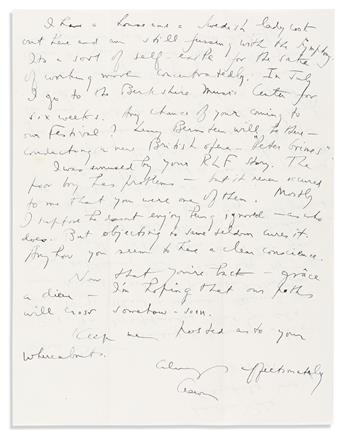 I have a house and a Swedish lady cook
out here and am still fussing with the Symphony.
Its a sort of self-exile for the sake
of working more concentratedly. In July
I go to the Berkshire Music Center for
six weeks. Any chance of your coming to
our Festival? Lenny Bernstein will be there –
conducting a new British opera – "Peter Grimes"
I was amused by your RLF story. The
poor boy has problems – but it never occured
to me that you were one of them. Mostly
I suppose he doesnt enjoy being ignored – as who
does. But objecting to same seldom cures it.
Anyhow you seem to have a clear conscience.
Now that you're back – grâce
a dieu – I'm hoping that our paths
will cross somehow – soon.
Keep me posted as to your
whereabouts.
Always affectionately
Aaron